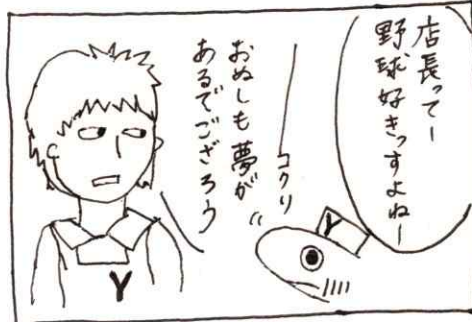 店長ってー
野球好きっすよねー
コクリ
おぬしも夢が
あるでござろう
Y
Y